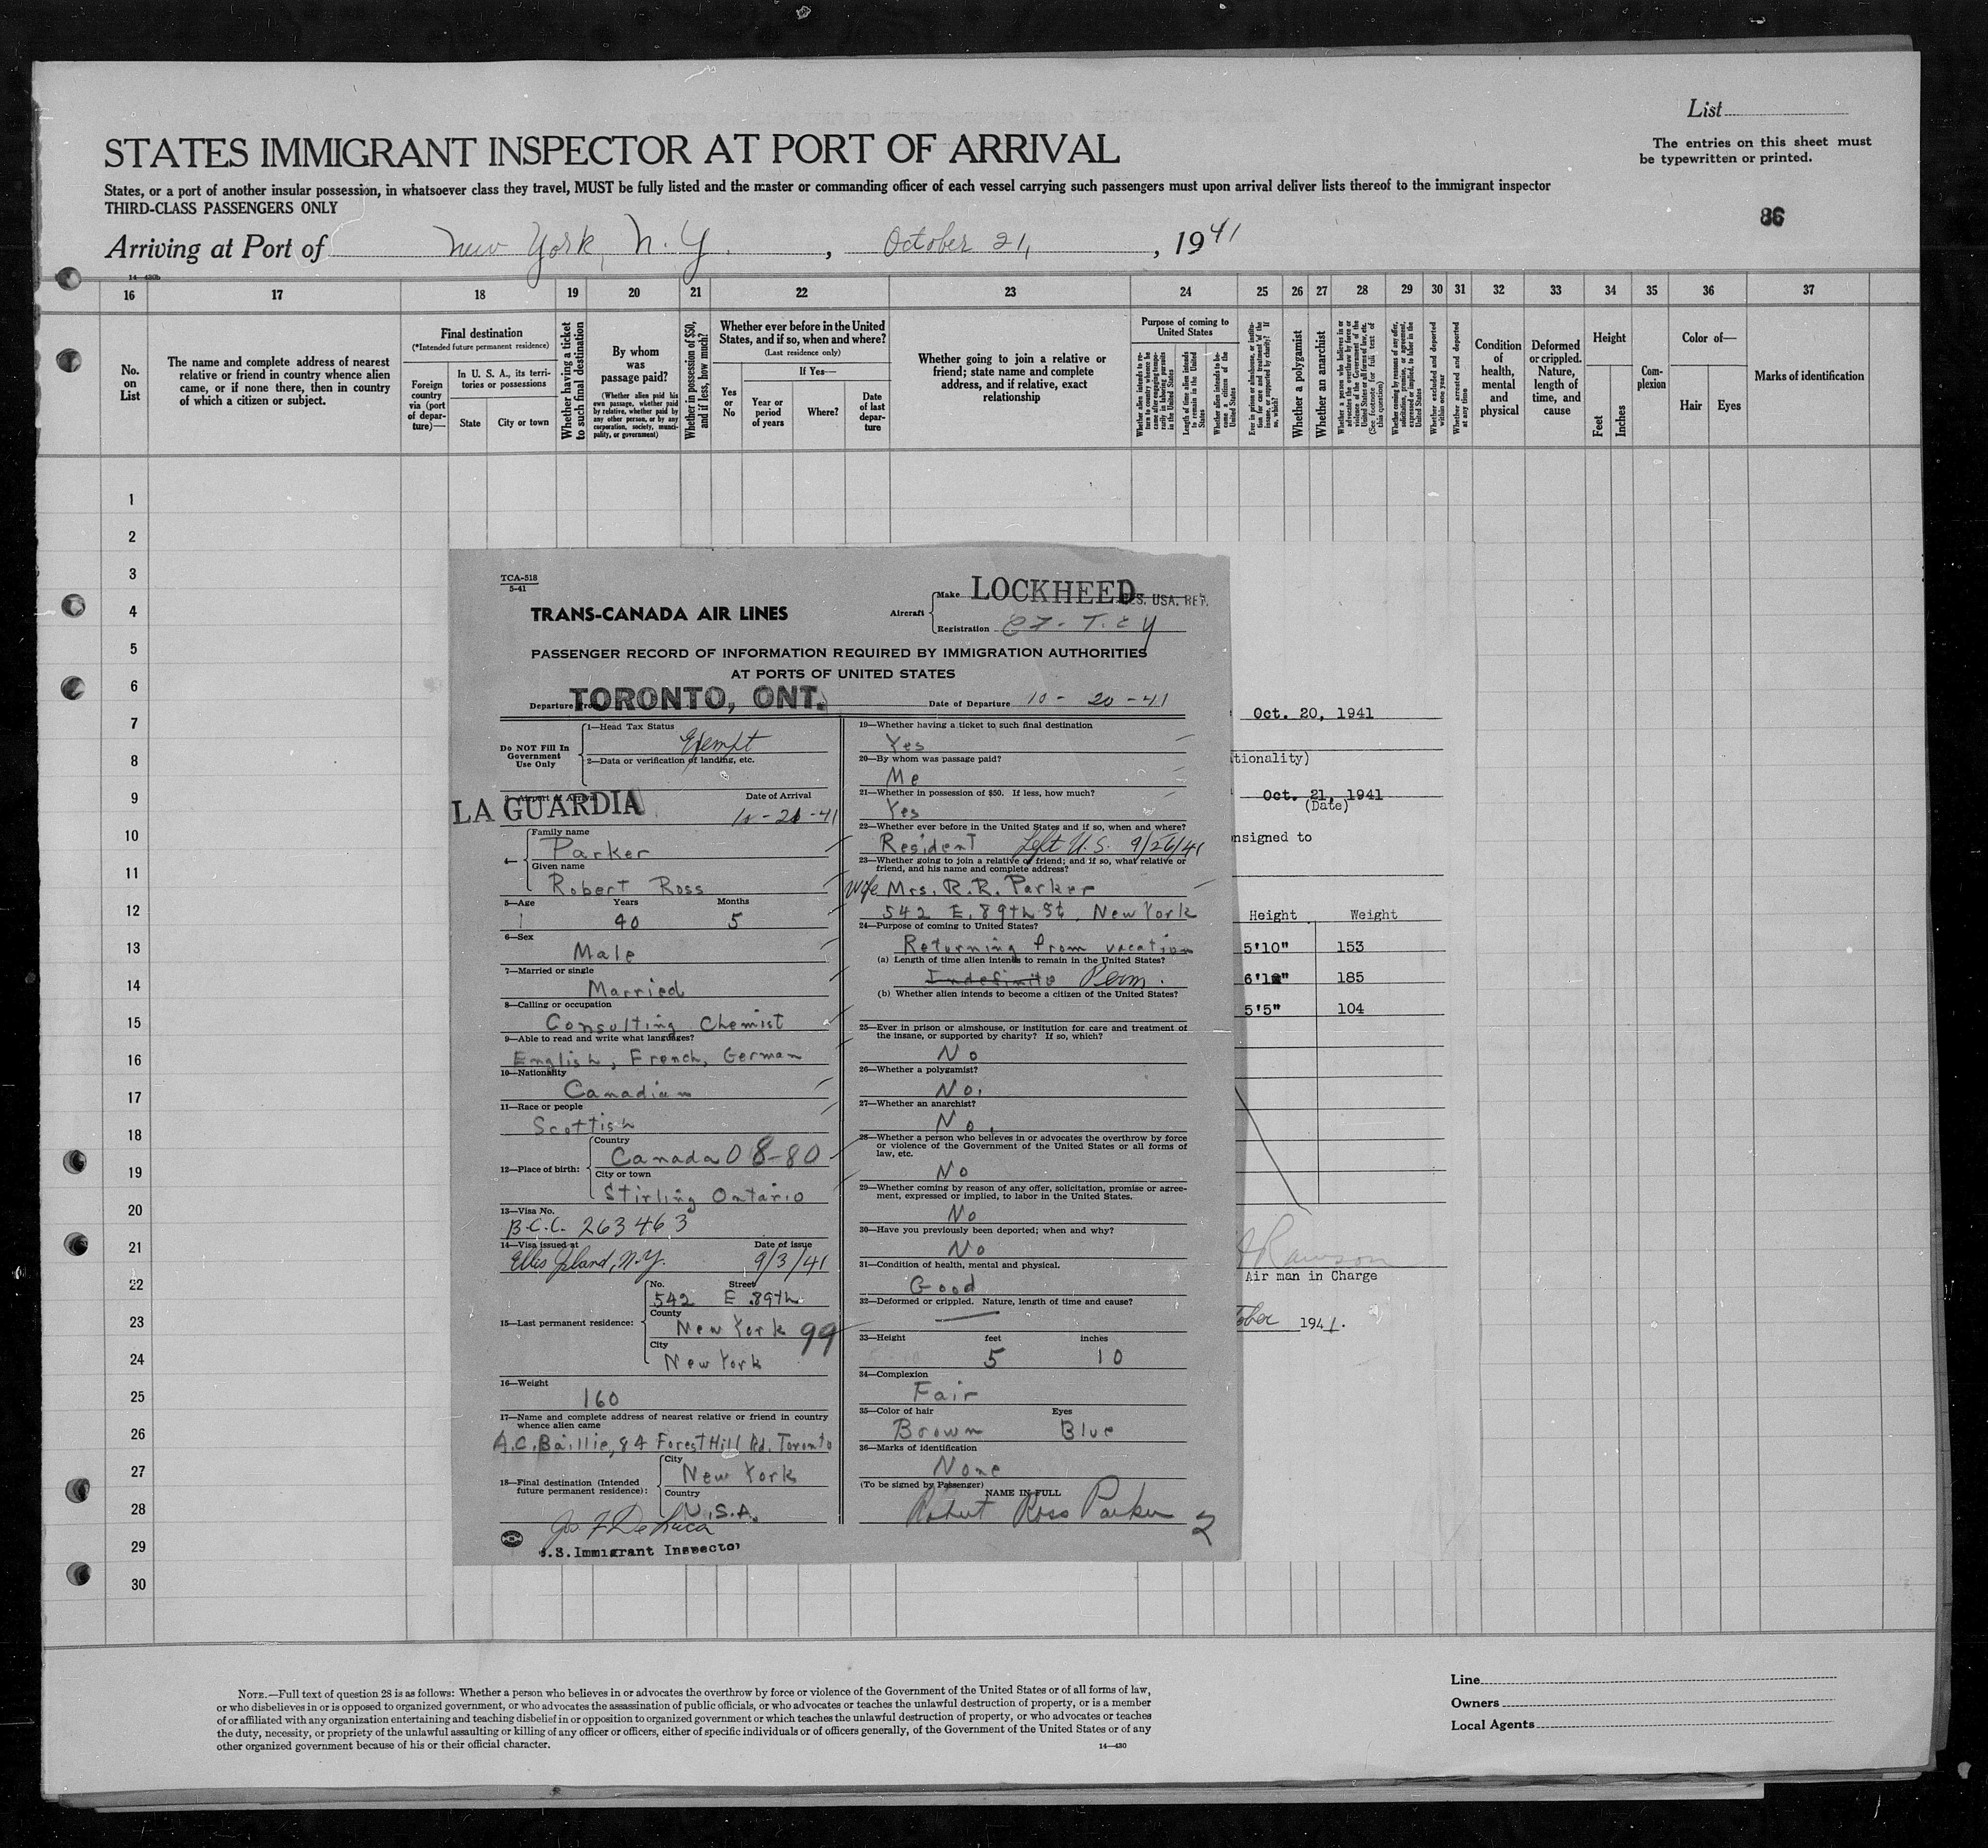 List
STATES IMMIGRANT INSPECTOR AT PORT OF ARRIVAL
The entries on this sheet must
be typewritten or printed.
States, or a port of another insular possession, in whatsoever class they travel, MUST be fully listed and the master or commanding officer of each vessel carrying such passengers must upon arrival deliver lists thereof to the immigrant inspector
THIRD-CLASS PASSENGERS ONLY
86
Arriving at Port of New York, N.Y. , October 21, , 1941
16 17 18 19 20 21 22 23 24 25 26 27 28 29 30 31 32 33 34 35 36 37
No. on List
The name and complete address of nearest
relative or friend in country whence alien
came, or if none there, then in country
of which a citizen or subject.
Final destination
(*Intended future permanent residence)
Foreign country via (port of departure)—
In U. S. A., its territories or possessions
State
City or town
Whether having a ticket to such final destination
By whom was passage paid?
(Whether alien paid his own passage, whether paid by relative, whether paid by any other person, or by any corporation, society, municipality, or government)
Whether in possession of $50, and if less, how much?
Whether ever before in the United States, and if so, when and where?
(Last residence only)
Yes or No
If Yes—
Year or period of years
Where?
Date of last departure
Whether going to join a relative or
friend; state name and complete
address, and if relative, exact
relationship
Purpose of coming to United States
Length of time alien intends to remain in the United States
Whether alien intends to become a citizen of the United States
Whether a polygamist
Whether an anarchist
Whether excluded and deported within one year
Whether arrested and deported at any time
Condition of health, mental and physical
Deformed or crippled. Nature, length of time, and cause
Height
Feet
Inches
Complexion
Color of—
Hair
Eyes
Marks of identification
1
2
3
4
5
6
7
8
9
10
11
12
13
14
15
16
17
18
19
20
21
22
23
24
25
26
27
28
29
30
TCA-518
5-41
TRANS-CANADA AIR LINES
Aircraft
Make LOCKHEED
Registration CF-TCY
PASSENGER RECORD OF INFORMATION REQUIRED BY IMMIGRATION AUTHORITIES
AT PORTS OF UNITED STATES
Departure from TORONTO, ONT.
Date of Departure 10-20-41
Do NOT Fill In
Government
Use Only
1—Head Tax Status
Exempt
2—Data or verification of landing, etc.
3—Airport of Arrival
LA GUARDIA
Date of Arrival
10-21-41
4—
Family name
Parker
Given name
Robert Ross
5—Age Years Months
40 5
6—Sex
Male
7—Married or single
Married
8—Calling or occupation
Consulting Chemist
9—Able to read and write what languages?
English, French, German
10—Nationality
Canadian
11—Race or people
Scottish
12—Place of birth:
Country
Canada 08-80
City or town
Stirling Ontario
13—Visa No.
B.C.C. 263463
14—Visa issued at Date of issue
Ellis Island, N.Y. 9/3/41
15—Last permanent residence:
No. Street
542 E 89th
County
New York 99
City
New York
16—Weight
160
17—Name and complete address of nearest relative or friend in country
whence alien came
A.C. Baillie, 84 Forest Hill Rd. Toronto
18—Final destination (Intended
future permanent residence):
City
New York
Country
U.S.A.
Jos F De Luca
U.S. Immigrant Inspector
19—Whether having a ticket to such final destination
Yes
20—By whom was passage paid?
Me
21—Whether in possession of $50. If less, how much?
Yes
22—Whether ever before in the United States and if so, when and where?
Resident Left U.S. 9/26/41
23—Whether going to join a relative or friend; and if so, what relative or
friend, and his name and complete address?
Wife Mrs. R.R. Parker
542 E. 89th St, New York
24—Purpose of coming to United States?
Returning from vacation
(a) Length of time alien intends to remain in the United States?
Indefinite Perm.
(b) Whether alien intends to become a citizen of the United States?
25—Ever in prison or almshouse, or institution for care and treatment of
the insane, or supported by charity? If so, which?
No
26—Whether a polygamist?
No.
27—Whether an anarchist?
No.
28—Whether a person who believes in or advocates the overthrow by force
or violence of the Government of the United States or all forms of
law, etc.
No
29—Whether coming by reason of any offer, solicitation, promise or agree-
ment, expressed or implied, to labor in the United States.
No
30—Have you previously been deported; when and why?
No
31—Condition of health, mental and physical.
Good
32—Deformed or crippled. Nature, length of time and cause?
33—Height feet inches
5 10
34—Complexion
Fair
35—Color of hair Eyes
Brown Blue
36—Marks of identification
None
(To be signed by Passenger)
NAME IN FULL
Robert Ross Parker
2
Oct. 20, 1941
tionality)
Oct. 21, 1941
(Date)
nsigned to
Height Weight
5'10" 153
185
5'5" 104
Air man in Charge
tober 1941.
NOTE.—Full text of question 28 is as follows: Whether a person who believes in or advocates the overthrow by force or violence of the Government of the United States or of all forms of law,
or who disbelieves in or is opposed to organized government, or who advocates the assassination of public officials, or who advocates or teaches the unlawful destruction of property, or is a member
of or affiliated with any organization entertaining and teaching disbelief in or opposition to organized government or which teaches the unlawful destruction of property, or who advocates or teaches
the duty, necessity, or propriety of the unlawful assaulting or killing of any officer or officers, either of specific individuals or of officers generally, of the Government of the United States or of any
other organized government because of his or their official character.
14—430
Line
Owners
Local Agents